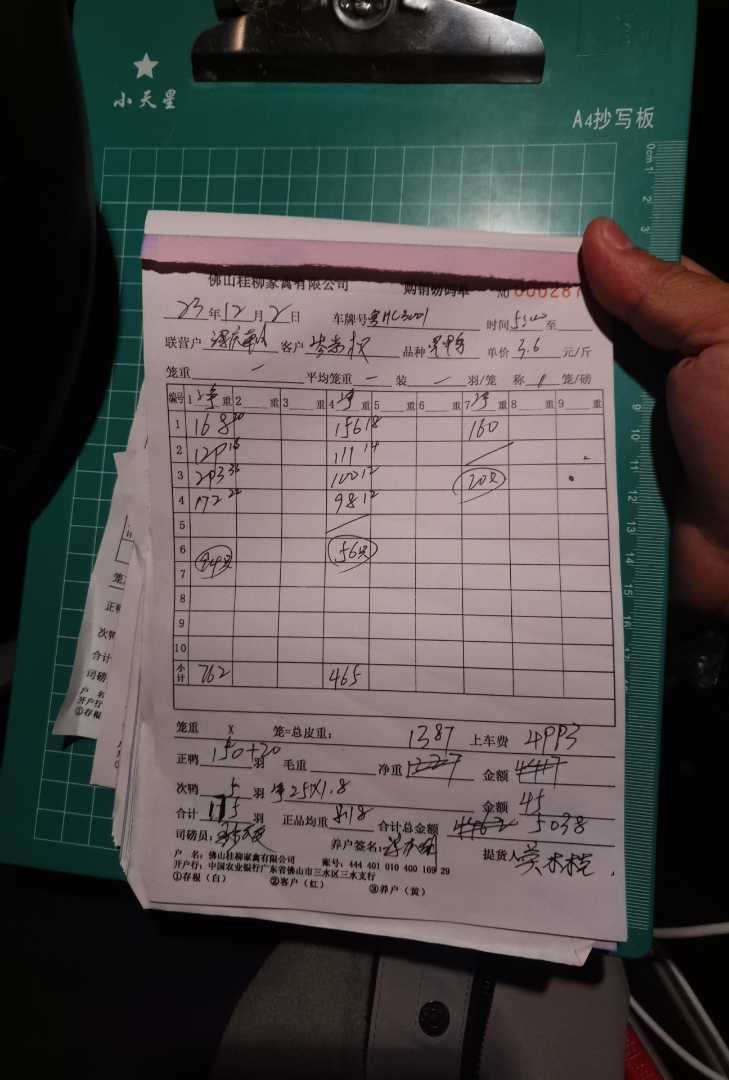 小天星
A4抄写板
0cm 1
2
3
佛山桂柳家禽有限公司 购销磅码单 № 000287
23年12月2日 车牌号 粤HC3001 时间 至
联营户 客户 品种 单价 3.6 元/斤
笼重 一 平均笼重 一 装 一 羽/笼 称 笼/磅
编号 1 净 重 2 重 3 重 4 净 重 5 重 6 重 7 净 重 8 重 9 重
1 168 20 156 18 160
2 111 14
3 203 36 100 12 20只
4 172 22 98 12
5
6 56只
7
8
9
10
小计 762 465
笼重 X 笼=总皮重: 1387 上车费 4993
正鸭 150+20 羽 毛重 净重 金额
次鸭 5 羽 净25X1.8 金额 45
合计 175 羽 正品均重 8.18 合计总金额 5038
司磅员: 养户签名: 提货人
户 名: 佛山桂柳家禽有限公司 账号: 444 401 010 400 169 29
开户行: 中国农业银行广东省佛山市三水区三水支行
①存根（白） ②客户（红） ③养户（黄）
9
10
11
12
13
14
15
16
笼
正鸭
次鸭
合计
司磅
户 名
开户行
①存根